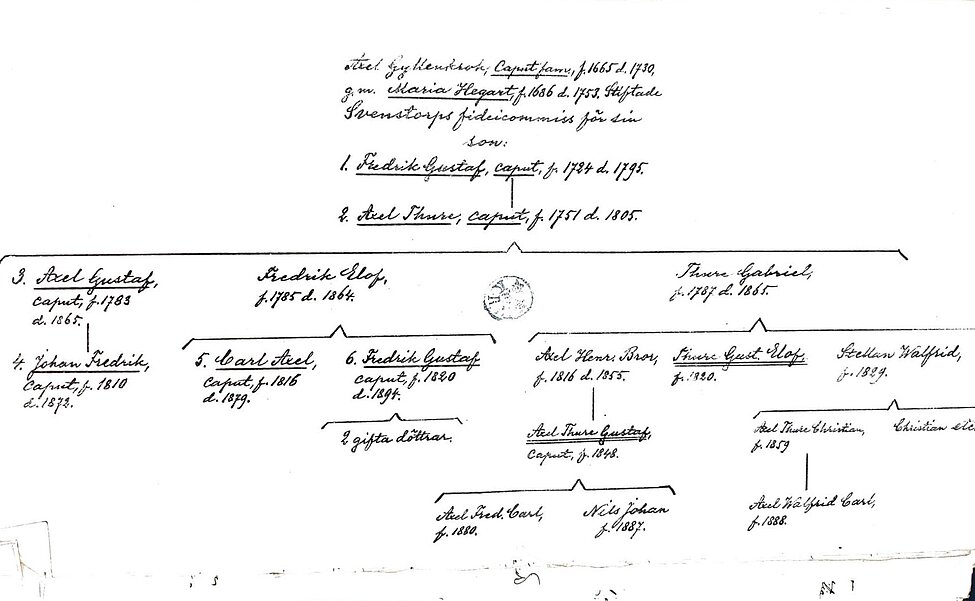 Axel Gyllenkrok, Caput fam., f. 1665 d. 1730,
g. m. Maria Hegart, f. 1686 d. 1753. Stiftade
Svenstorps fideicommiss för sin
son:
1. Fredrik Gustaf, caput, f. 1724 d. 1795.
2. Axel Thure, caput, f. 1751 d. 1805.
3. Axel Gustaf,
caput, f. 1783
d. 1865.
Fredrik Elof,
f. 1785 d. 1864.
Thure Gabriel,
f. 1787 d. 1865.
4. Johan Fredrik,
caput, f. 1810
d. 1872.
5. Carl Axel,
caput, f. 1816
d. 1879.
6. Fredrik Gustaf
caput, f. 1820
d. 1894.
Axel Henr. Bror,
f. 1816 d. 1855.
Thure Gust. Elof,
f. 1820.
Stellan Walfrid,
f. 1829.
2 gifta döttrar.
Axel Thure Gustaf,
caput, f. 1848.
Axel Thure Christian,
f. 1859
Christian etc.
Axel Fred. Carl,
f. 1880.
Nils Johan
f. 1887.
Axel Walfrid Carl,
f. 1888.